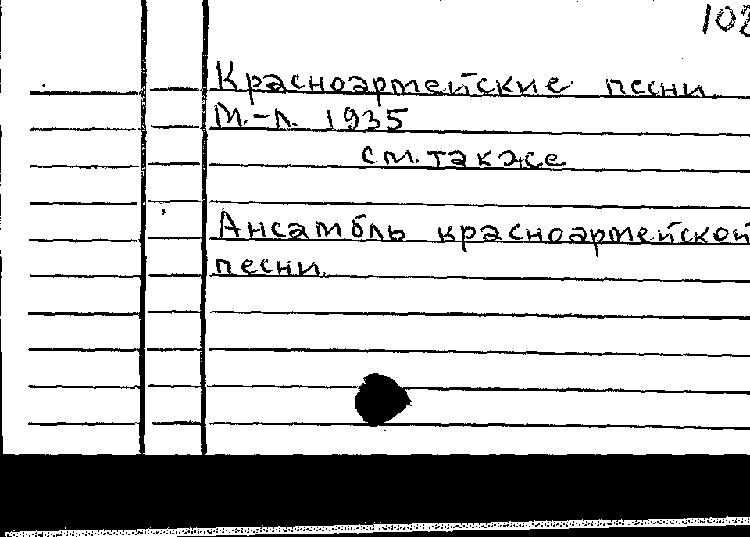 102
Красноармейские песни.
М.-Л. 1935
см. также
Ансамбль красноармейской
песни.